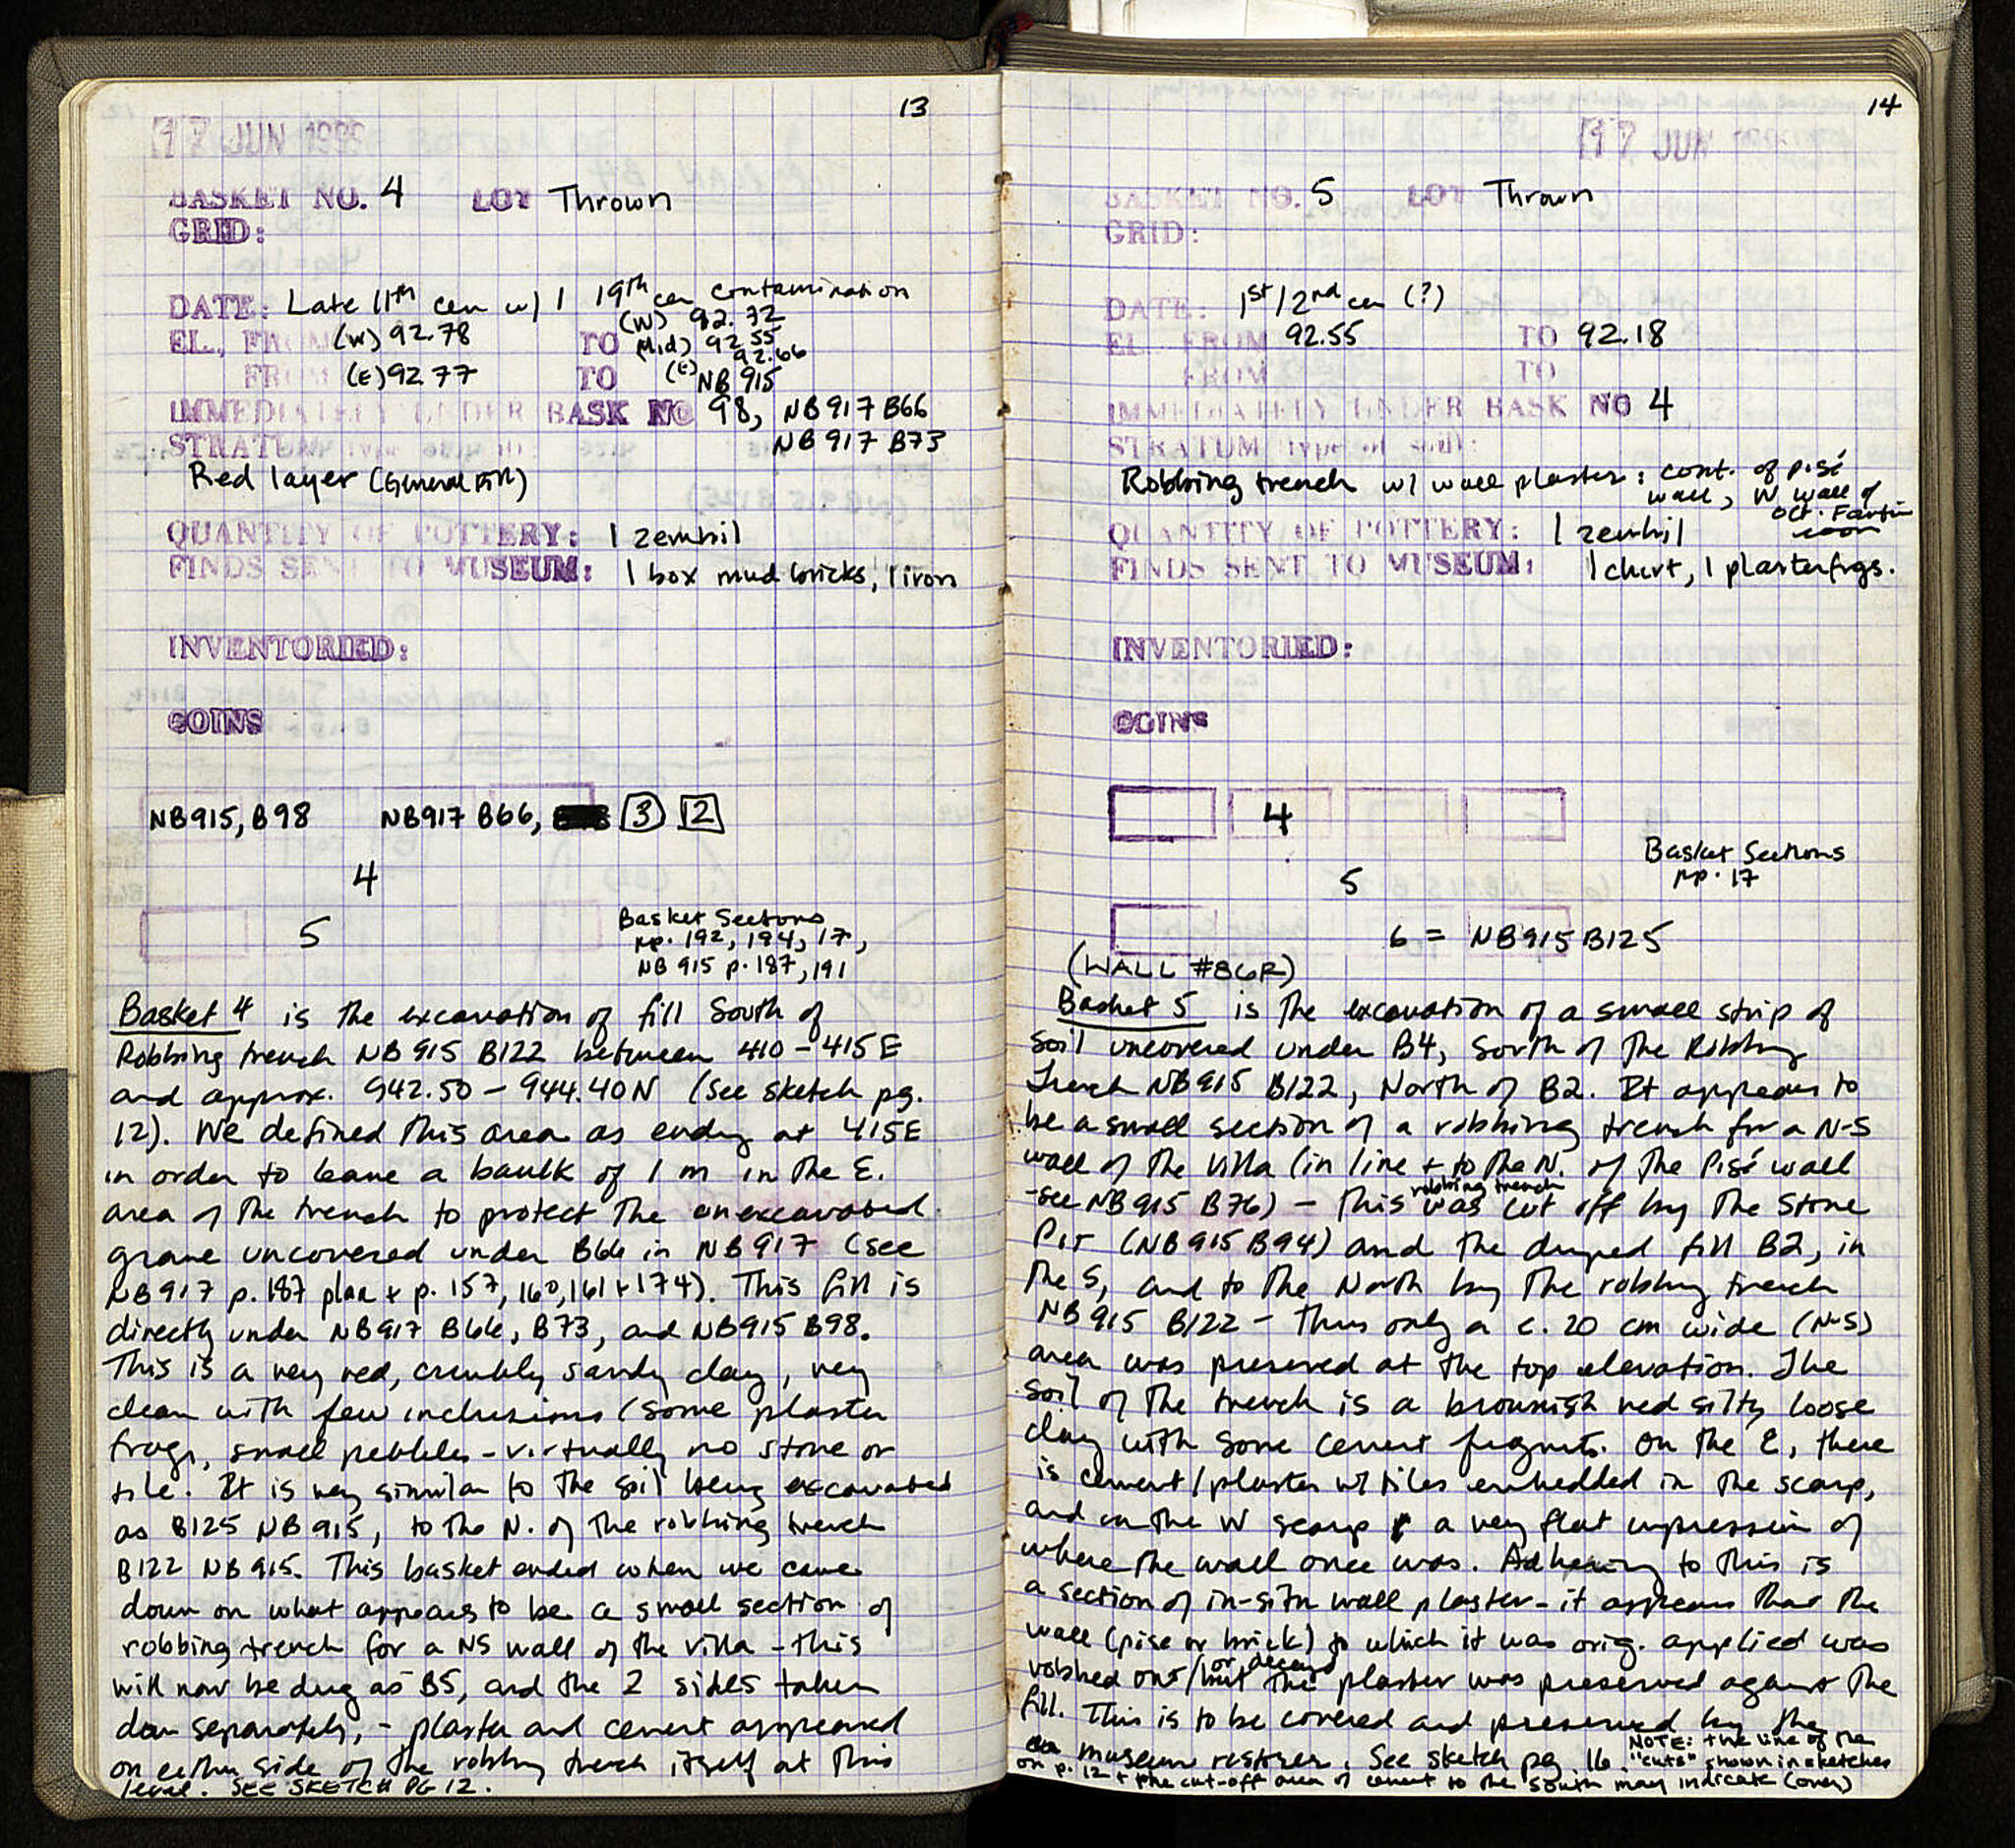 13
17 JUN
BASKET NO. 4 LOT Thrown
GRID:
DATE: Late 11th cen w/ 1 19th cen contamination
EL., FROM (W) 92.78 TO (W) 92.72
(Mid) 92.55
FROM (E) 92.77 TO (E) 92.66
NB 915
IMMEDIATELY UNDER BASK NO 98, NB917 B66
STRATUM (type of soil): NB 917 B73
Red layer (General Fill)
QUANTITY OF POTTERY: 1 zembil
FINDS SENT TO MUSEUM: 1 box mud bricks, 1 iron
INVENTORIED:
COINS
NB915, B98 NB917 B66, 3 2
4
5
Basket Sections
pp. 192, 194, 17,
NB 915 p. 187, 191
Basket 4 is the excavation of fill South of
Robbing trench NB 915 B122 between 410 - 415 E
and approx. 942.50 - 944.40 N (see sketch pg.
12). We defined this area as ending at 415E
in order to leave a baulk of 1 m in the E.
area of the trench to protect the unexcavated
grave uncovered under B66 in NB917 (see
NB917 p. 187 plan + p. 157, 160, 161 + 174). This fill is
directly under NB917 B66, B73, and NB915 B98.
This is a very red, crumbly sandy clay, very
clean with few inclusions (some plaster
frags, small pebbles - virtually no stone or
tile. It is very similar to the soil being excavated
as B125 NB 915, to the N. of the robbing trench
B122 NB 915. This basket ended when we came
down on what appears to be a small section of
robbing trench for a NS wall of the villa - this
will now be dug as B5, and the 2 sides taken
down separately, - plaster and cement appeared
on either side of the robbing trench itself at this
level. SEE SKETCH PG 12.
14
17 JUN
BASKET NO. 5 LOT Thrown
GRID:
DATE: 1st/2nd cen (?)
EL. FROM 92.55 TO 92.18
FROM TO
IMMEDIATELY UNDER BASK NO 4
STRATUM (type of soil):
Robbing trench w/ wall plaster: cont. of pisé
wall, W wall of
Oct. Fountain
room
QUANTITY OF POTTERY: 1 zembil
FINDS SENT TO MUSEUM: 1 chert, 1 plaster frgs.
INVENTORIED:
COINS
4
5
Basket Sections
pp. 17
6 = NB915 B125
(WALL #86R)
Basket 5 is the excavation of a small strip of
soil uncovered under B4, South of the Robbing
Trench NB915 B122, North of B2. It appears to
be a small section of a robbing trench for a N-S
wall of the Villa (in line + to the N. of the Pisé wall
- see NB915 B76) - this robbing trench was cut off by the Stone
Pit (NB915 B94) and the dumped fill B2, in
the S, and to the North by the robbing trench
NB 915 B122 - Thus only a c. 20 cm wide (N-S)
area was preserved at the top elevation. The
soil of the trench is a brownish red silty loose
clay with some cement fragments. On the E, there
is cement/plaster w/ tiles embedded in the scarp,
and on the W scarp a very flat impression of
where the wall once was. Adhering to this is
a section of in-situ wall plaster - it appears that the
wall (pise or brick) to which it was orig. applied was
robbed out / or decayed but the plaster was preserved against the
fill. This is to be covered and preserved by the
museum restorer. See sketch pg. 16. NOTE: the line of the
"cuts" shown in sketches
on p. 12 + the cut-off area of cement to the South may indicate (over)